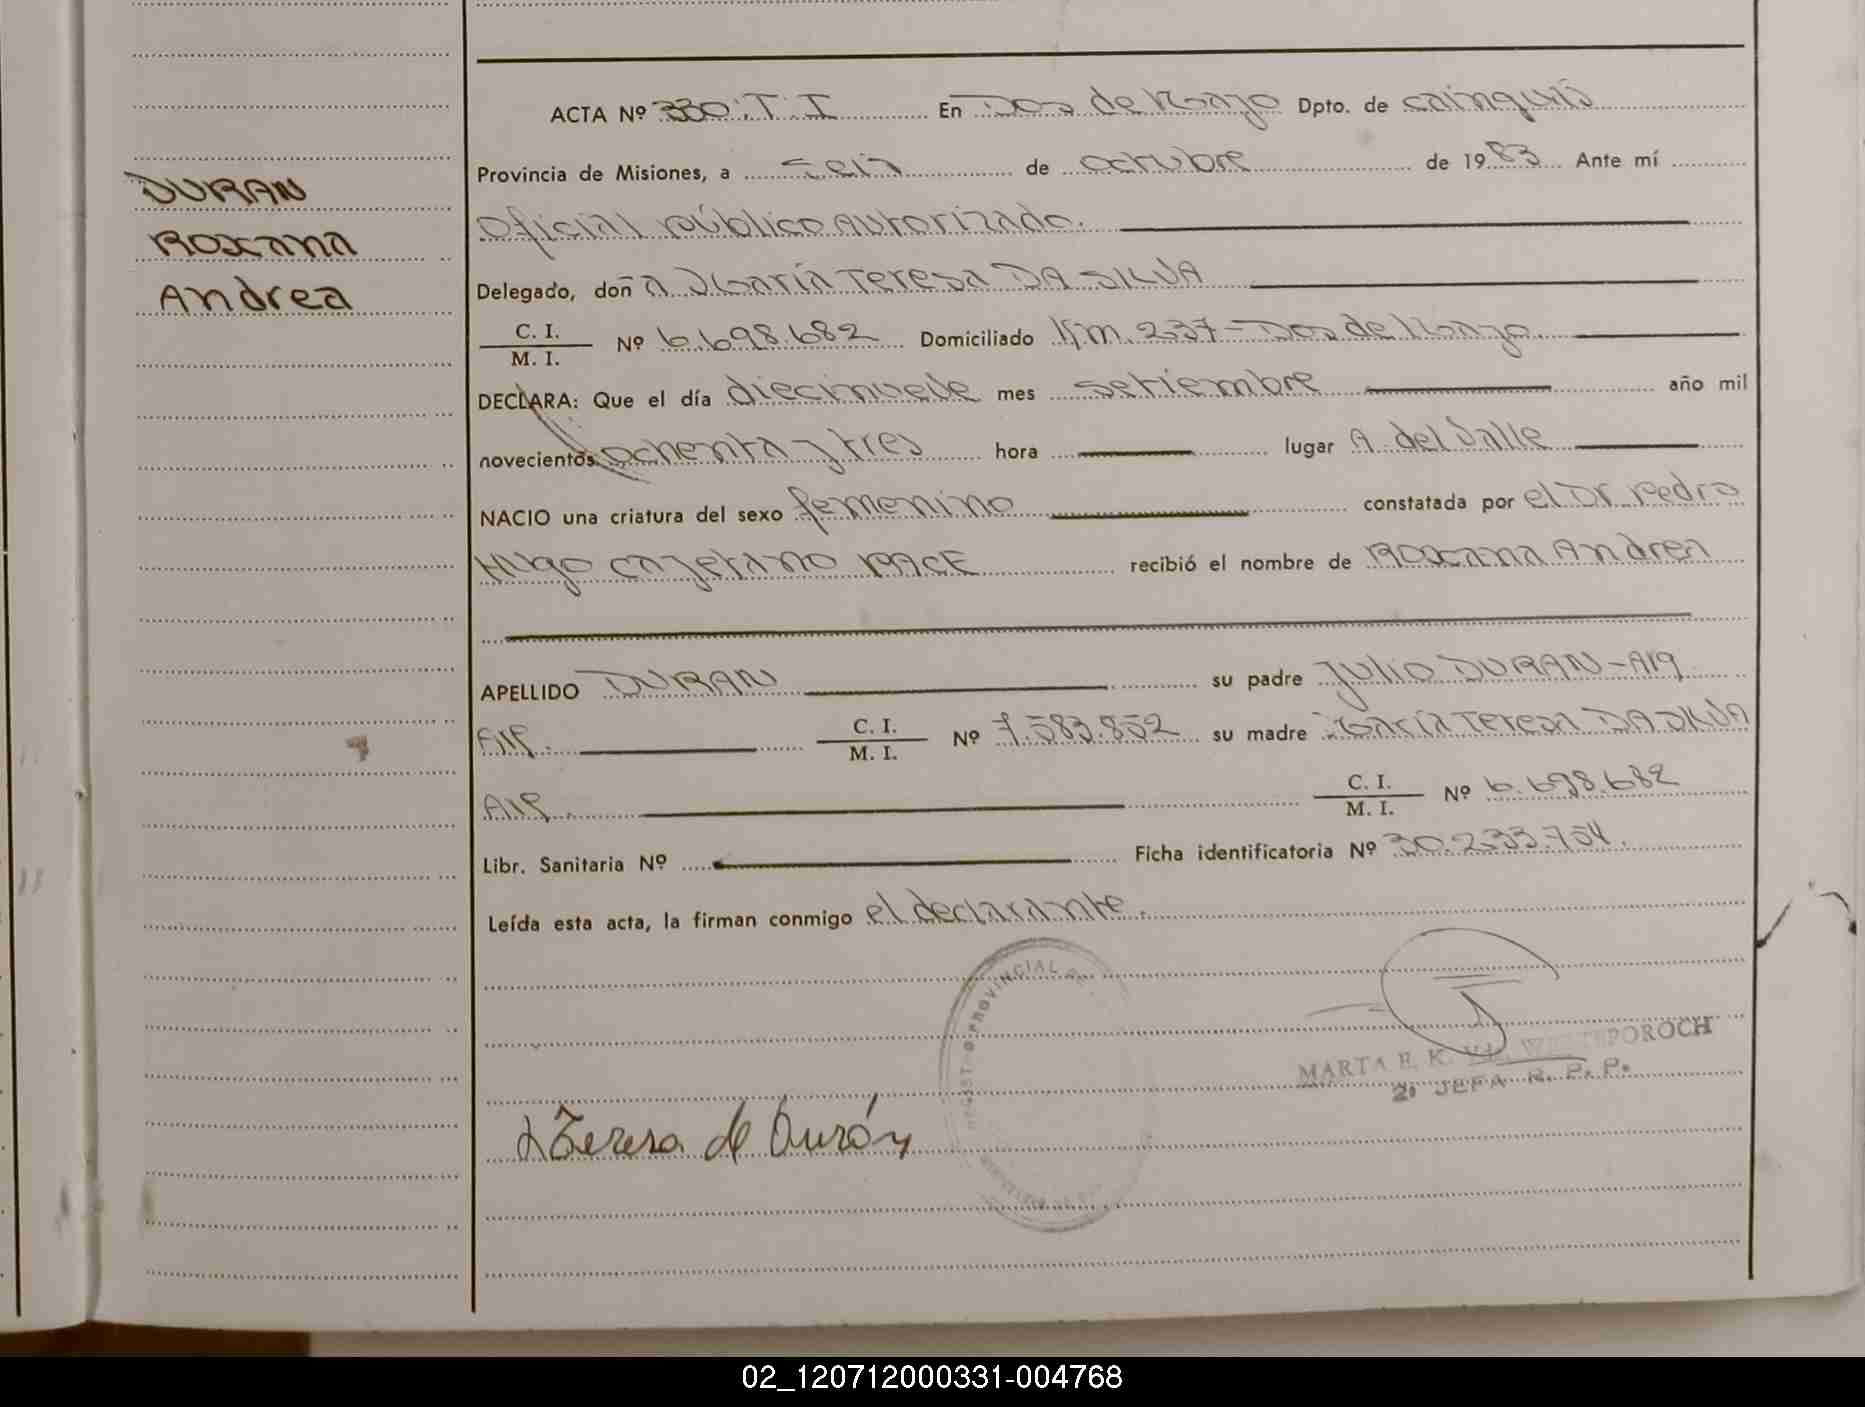 ACTA Nº 330. T. I En Dos de Mayo Dpto. de Cainguás
Provincia de Misiones, a seis de octubre de 1983 Ante mí
DURAN
Oficial público autorizado.
Roxana
Andrea
Delegado, doña María Teresa DA SILVA
C. I. / M. I. Nº 6.698.682 Domiciliado Km. 237 - Dos de Mayo
DECLARA: Que el día diecinueve mes setiembre año mil
novecientos ochenta y tres hora lugar A. del Valle
NACIO una criatura del sexo femenino constatada por el Dr. Pedro
Hugo Cayetano PACE recibió el nombre de Roxana Andrea
APELLIDO DURAN su padre Julio DURAN - Arg
C. I. / M. I. Nº 7.583.852 su madre María Teresa DA SILVA
C. I. / M. I. Nº 6.698.682
Libr. Sanitaria Nº Ficha identificatoria Nº 30.233.754.
Leída esta acta, la firman conmigo el declarante.
PROVINCIAL DE
MARTA E. K.
2º JEFA R. P. P.
Teresa de Durán
02_120712000331-004768